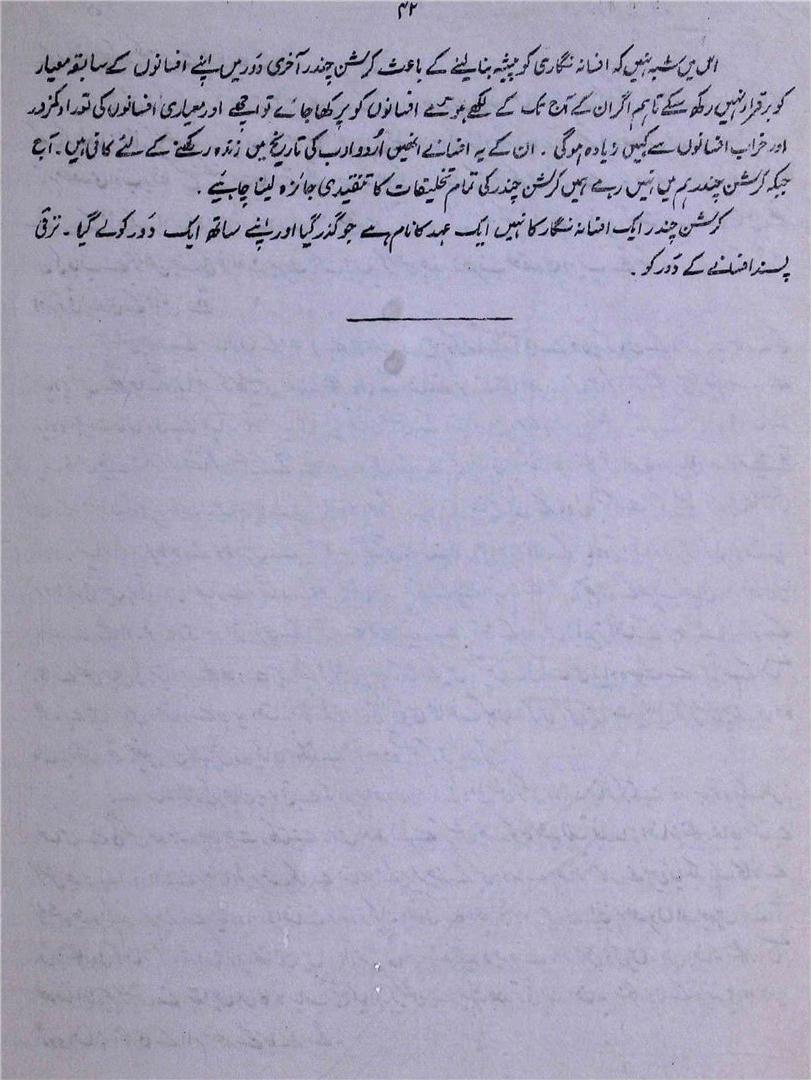 ۴۲
اس میں شبہ نہیں کہ افسانہ نگاری کو پیشہ بنا لینے کے باعث کرشن چندر آخری دَور میں اپنے افسانوں کے سابقہ معیار
کو برقرار نہیں رکھ سکے تاہم اگر ان کے آج تک کے لکھے ہوئے افسانوں کو پرکھا جائے تو اچھے اور معیاری افسانوں کی تعداد کمزور
اور خراب افسانوں سے کہیں زیادہ ہوگی ۔ ان کے یہ افسانے انھیں اُردو ادب کی تاریخ میں زندہ رکھنے کے لئے کافی ہیں ۔ آج
جبکہ کرشن چندر ہم میں نہیں رہے ہمیں کرشن چندر کی تمام تخلیقات کا تنقیدی جائزہ لینا چاہیئے ۔
کرشن چندر ایک افسانہ نگار کا نہیں ایک عہد کا نام ہے جو گذر گیا اور اپنے ساتھ ایک دَور کو لے گیا ۔ ترقی
پسند افسانے کے دَور کو ۔